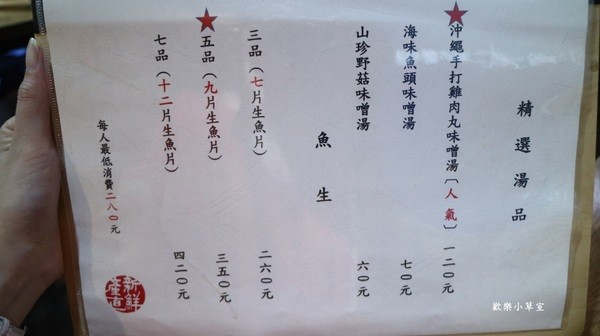 精選湯品
沖繩手打雞肉丸味噌湯〔人氣〕 一二○元
海味魚頭味噌湯 七○元
山珍野菇味噌湯 六○元
魚生
三品（七片生魚片） 二六○元
五品（九片生魚片） 三五○元
七品（十二片生魚片） 四二○元
每人最低消費二八○元
新鮮產直
歡樂小草室